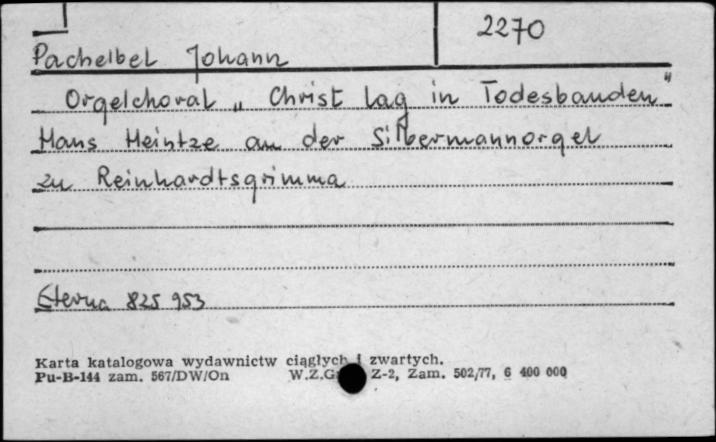 2270
Pachelbel Johann
Orgelchoral „Christ lag in Todesbanden"
Hans Heintze an der Silbermannorgel
zu Reinhardtsgrimma
Eterna 825 953
Karta katalogowa wydawnictw ciągłych i zwartych.
Pu-B-144 zam. 567/DW/On W.Z.G Z-2, Zam. 502/77, 6 400 000